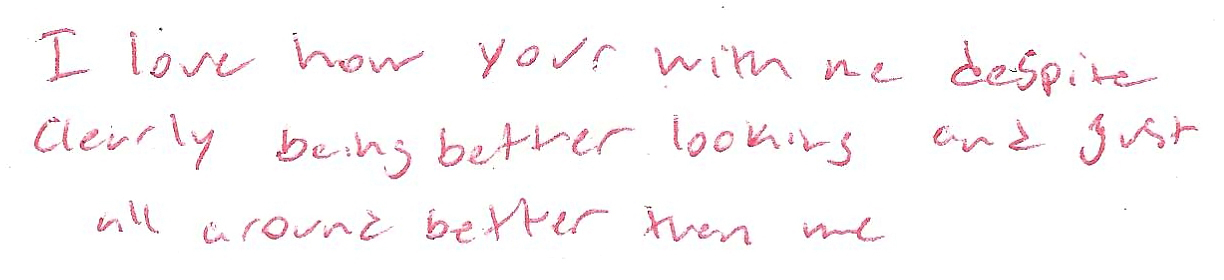 I love how your with me despite
clearly being better looking and just
all around better than me